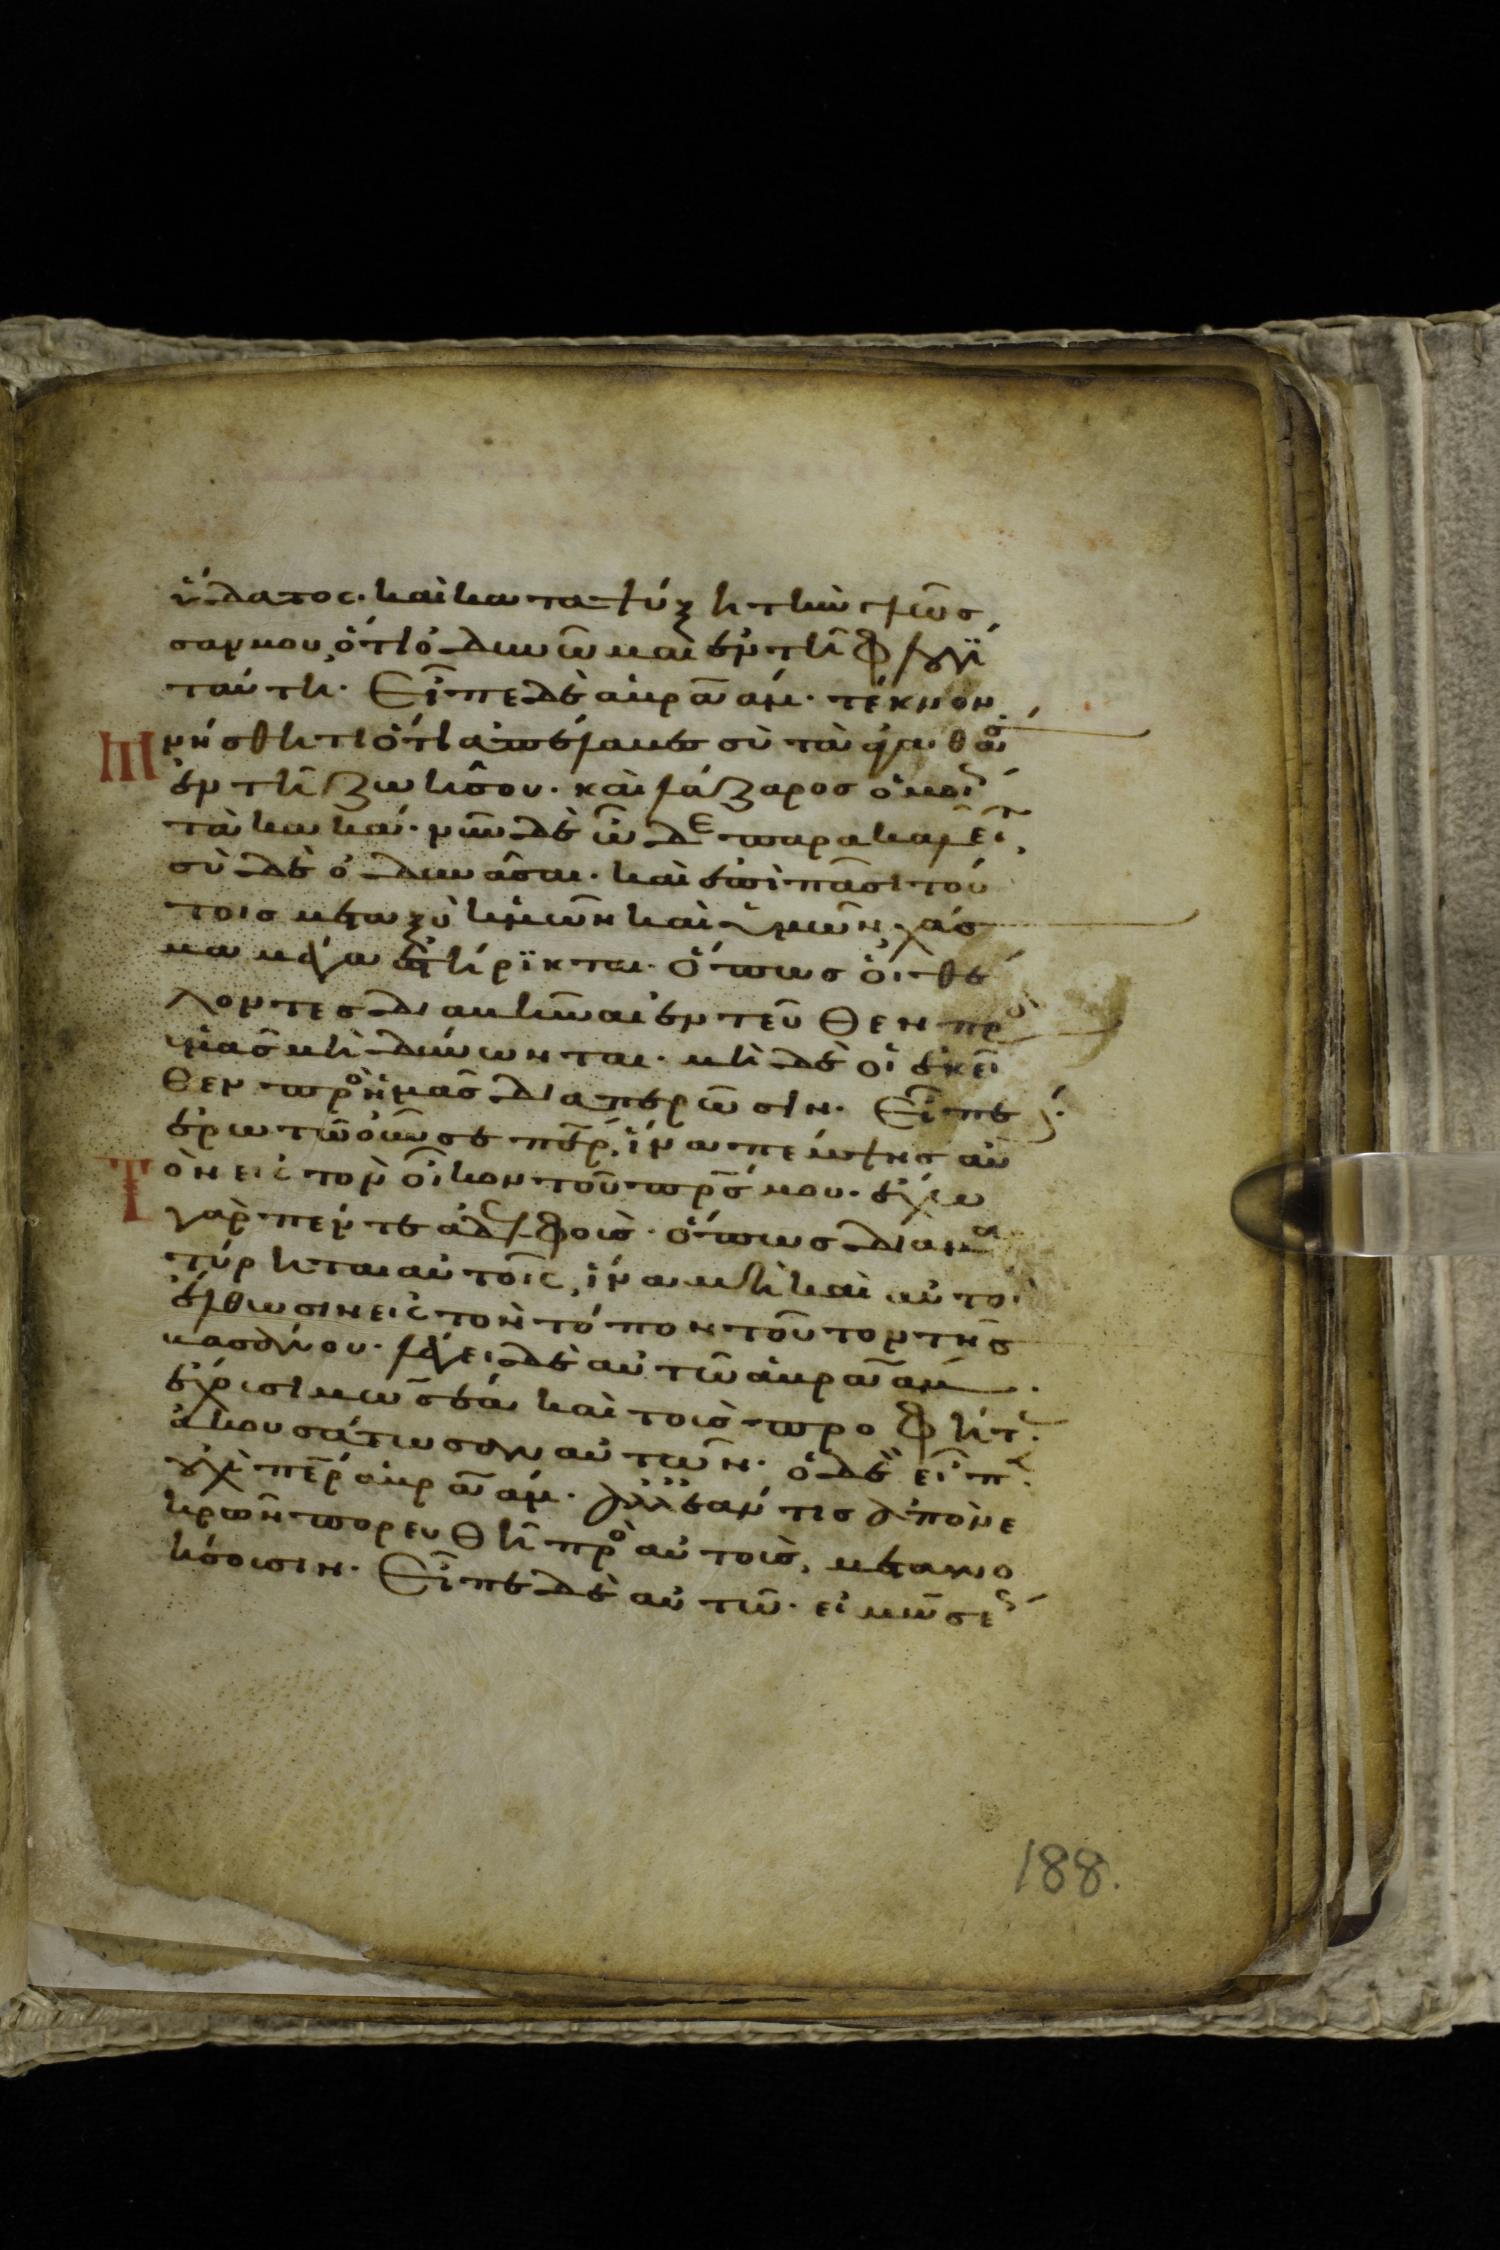 ὕδατος· καὶ καταψύξῃ τὴν γλῶσ
σαν μου, ὅτι ὀδυνῶμαι ἐν τῇ φλογὶ
ταύτῃ· Εἶπε δὲ ἀβραάμ· τέκνον
μνήσθητι ὅτι ἀπέλαβες σὺ τὰ ἀγαθά σου
ἐν τῇ ζωῇ σου· καὶ λάζαρος ὁμοί
τὰ κακά· νῦν δὲ ὧδε παρακαλεῖτ
σὺ δὲ ὀδυνᾶσαι· καὶ ἐπὶ πᾶσι τού
τοις μεταξὺ ἡμῶν καὶ ὑμῶν χάσ
μα μέγα ἐστήρικται· ὅπως οἱ θέ
λοντες διαβῆναι ἐντεῦθεν πρὸ
ὑμᾶς μὴ δύνωνται· μὴ δὲ οἱ ἐκεῖ
θεν πρὸ ἡμᾶς διαπερῶσιν· Εἶπε δέ·
ἐρωτῶ οὖν σε περ, ἵνα πέμψῃς αὐ
τὸν εἰς τὸν οἶκον τοῦ πρς μου· ἔχω
γὰρ πέντε ἀδελφοὺς· ὅπως διαμα
τύρηται αὐτοῖς, ἵνα μὴ καὶ αὐτοὶ
ἔλθωσιν εἰς τὸν τόπον τοῦτον τῆς
βασάνου· λέγει δὲ αὐτῶ ἀβραάμ·
ἔχουσι μωσέα καὶ τοὺς προφήτ·
ἀκουσάτωσαν αὐτῶν· ὁ δὲ εἶπ·
οὐχὶ περ ἀβραάμ· ἀλλ' ἐάν τις ἀπὸ νε
κρῶν πορευθῇ πρὸ αὐτοὺς, μετανο
ήσουσιν· Εἶπε δὲ αὐτῶ· εἰ μωσέ
188.